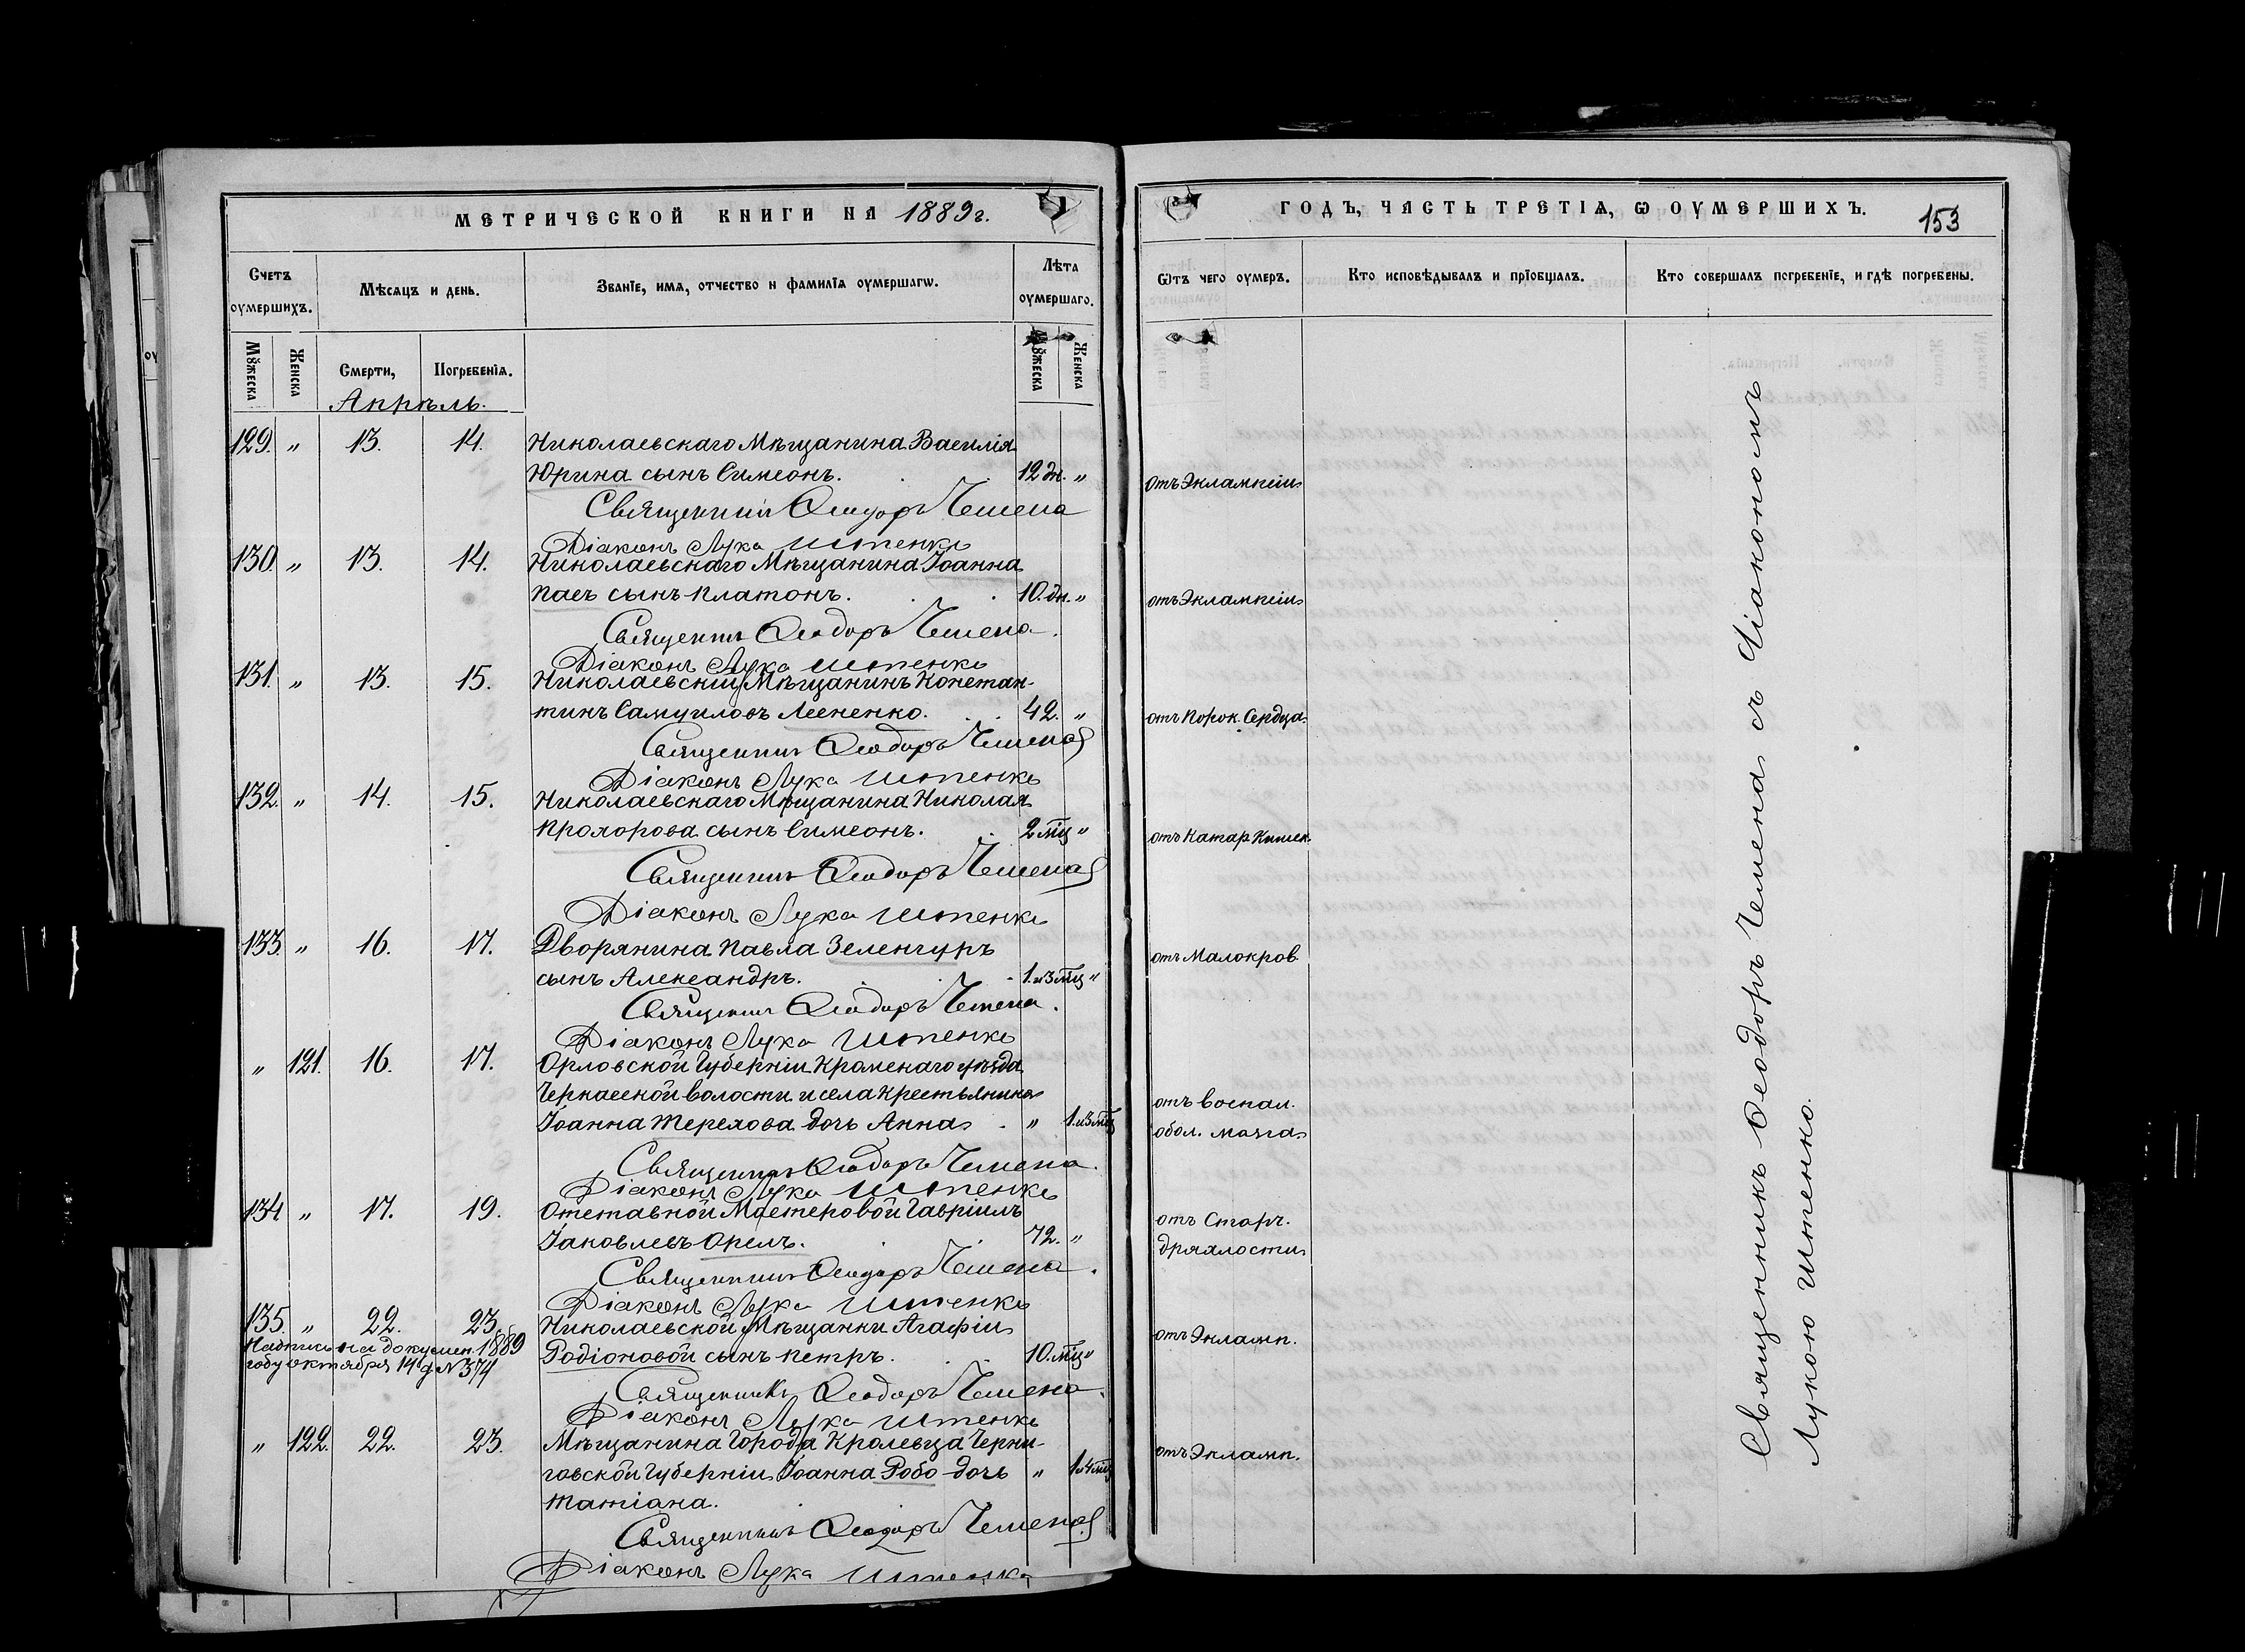 МЕТРИЧЕСКОЙ КНИГИ НА 1889 г.
Счетъ оумершихъ.
Мѣсяцъ и день.
Званїе, имѧ, отчество и фамилїѧ оумершагѡ.
Лѣта оумершаго.
Мꙋжеска
Женска
Смерти,
Погребенїѧ.
Мꙋжеска
Женска
Апрѣль.
129. " 13. 14. Николаевскаго Мѣщанина Василія
Юрина сынъ Симеонъ. 12 дн. "
Священникъ Ѳеодоръ Чемена
Діаконъ Лука Ительнко
130. " 13. 14. Николаевскаго Мѣщанина Іоанна
Паса сынъ Платонъ. 10. дн. "
Священникъ Ѳеодоръ Чемена.
Діаконъ Лука
131. " 13. 15. Николаевскій Мѣщанинъ Констан-
тинъ Самуиловъ Лесненко. 42. "
Священникъ Ѳеодоръ Чемена
Діаконъ Лука
132. " 14. 15. Николаевскаго Мѣщанина Николая
Прохорова сынъ Симеонъ. 2 мц "
Священникъ Ѳеодоръ Чемена
Діаконъ Лука
133. " 16. 17. Дворянина Павла Зеленгуръ
сынъ Александръ. 1. и 3 мц "
Священникъ Ѳеодоръ Чемена.
Діаконъ Лука
" 121. 16. 17. Орловской Губерніи Кромскаго уѣзда
Черкасской волости и села Крестьянина
Іоанна Терехова дочь Анна. " 1. и 3 мц
Священникъ Ѳеодоръ Чемена.
Діаконъ Лука
134 " 17. 19. Отставной Мастеровой Гавріилъ
Іаковлевъ Орелъ. 72. "
Священникъ Ѳеодоръ Чемена.
Діаконъ Лука
135. " 22. 23. Николаевской Мѣщанки Агафіи
Надпись на докумен. 1889
году октября 14 д N 374
Родіоновой сынъ Петръ. 10. мц "
Священникъ Ѳеодоръ Чемена.
Діаконъ Лука
" 122. 22. 23. Мѣщанина Города Кролевца Черни-
говской Губерніи Іоанна Робо дочь " 1 и 4 мц
Татіана.
Священникъ Ѳеодоръ Чемена
Діаконъ Лука
ГОДЪ, ЧАСТЬ ТРЕТІѦ, Ѡ ОУМЕРШИХЪ.
153
Ѿтъ чего оумеръ.
Кто исповѣдывалъ и прїобщалъ.
Кто совершалъ погребенїе, и гдѣ погребены.
отъ Эклампсіи
отъ Эклампсіи
отъ Порок. Сердца.
отъ Катар Кишек.
отъ Малокров.
отъ воспал.
обол. мозга
отъ Старч.
дряхлости
отъ Экламп.
отъ Экламп.
Священникъ Ѳеодоръ Чемена съ Діакономъ
Лукою